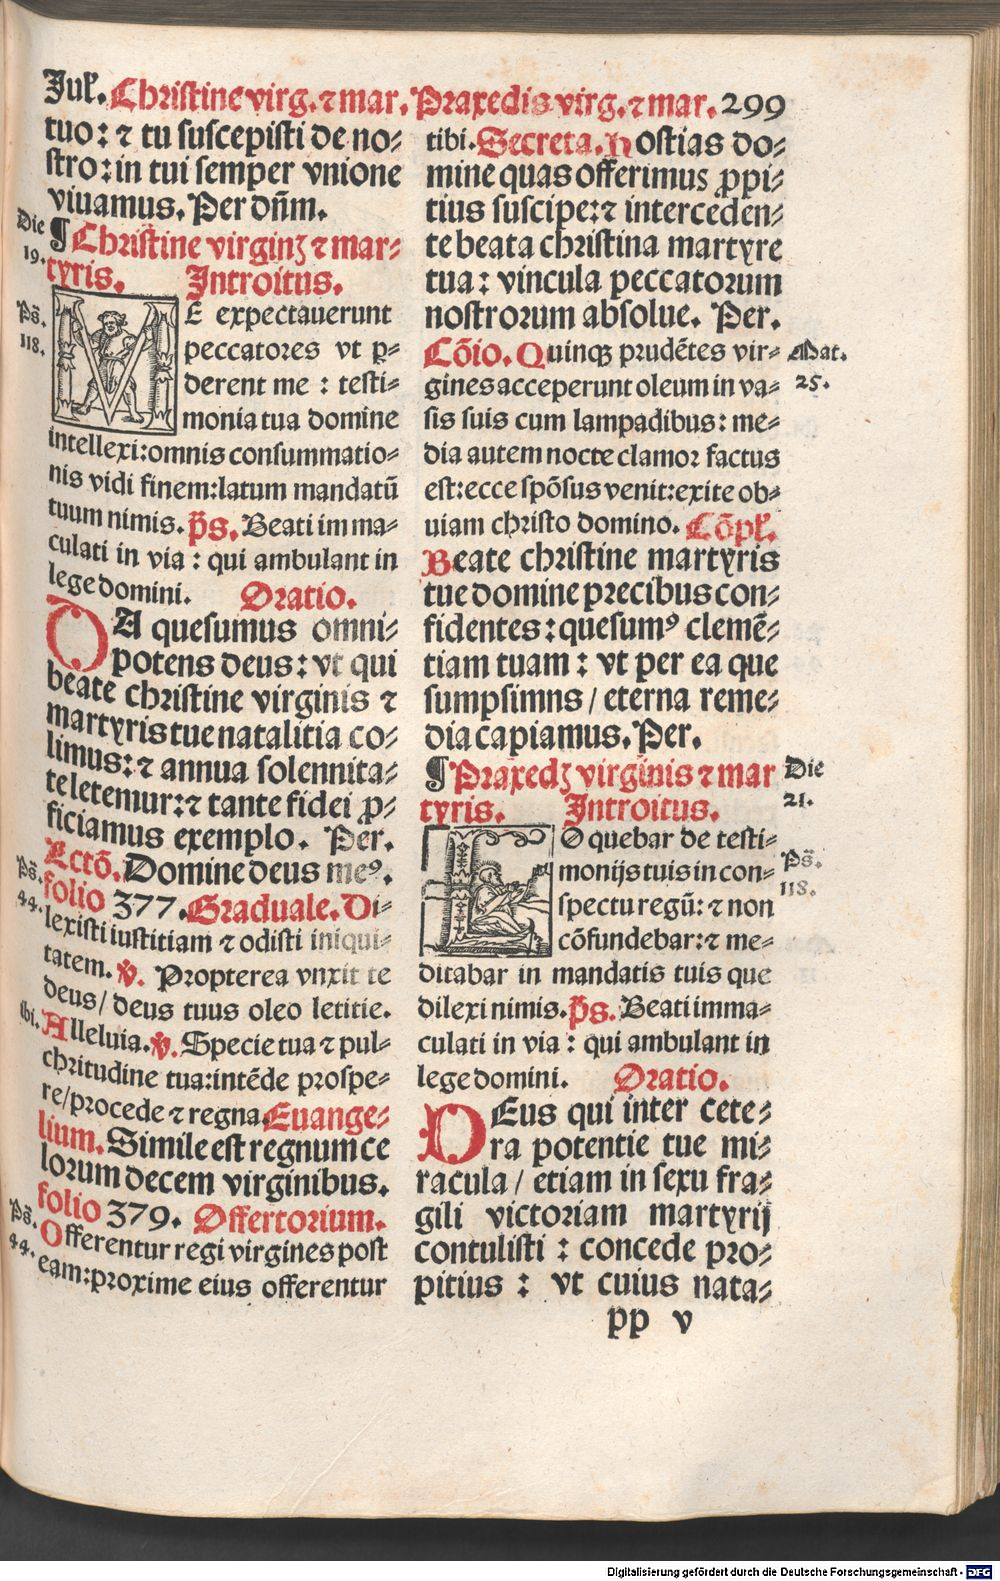 Jul̉. Christine virg. ⁊ mar. Praxedis virg. ⁊ mar. 299
tuo: ⁊ tu suscepisti de no-
stro: in tui semper vnione
viuamus. Per dñm.
Die
19.
¶ Christine virginꝫ ⁊ mar-
tyris. Introitus.
Ps̄.
118.
ME expectauerunt
peccatores vt ꝑ-
derent me : testi-
monia tua domine
intellexi: omnis consummatio-
nis vidi finem: latum mandatū
tuum nimis. p̄s. Beati imma-
culati in via : qui ambulant in
lege domini. Oratio.
DA quesumus omni-
potens deus: vt qui
beate christine virginis ⁊
martyris tue natalitia co-
limus: ⁊ annua solennita-
te letemur: ⁊ tante fidei ꝑ-
ficiamus exemplo. Per.
Lectō. Domine deus meꝰ.
Ps̄.
44.
folio 377. Graduale. Di-
lexisti iustitiam ⁊ odisti iniqui-
tatem. ℣. Propterea vnxit te
deus/ deus tuus oleo letitie.
ibi.
Alleluia. ℣. Specie tua ⁊ pul-
chritudine tua: intēde prospe-
re/ procede ⁊ regna. Euange-
lium. Simile est regnum ce
lorum decem virginibus.
folio 379. Offertorium.
Ps̄.
44.
Offerentur regi virgines post
eam: proxime eius offerentur
tibi. Secreta. Hostias do-
mine quas offerimus ꝓpi-
tius suscipe: ⁊ interceden-
te beata christina martyre
tua : vincula peccatorum
nostrorum absolue. Per.
Cōio. Quinqꝫ prudētes vir-
Mat.
25.
gines acceperunt oleum in va-
sis suis cum lampadibus: me-
dia autem nocte clamor factus
est: ecce spōsus venit: exite ob-
uiam christo domino. Cōpl̉.
Beate christine martyris
tue domine precibus con-
fidentes : quesumꝰ clemē-
tiam tuam : vt per ea que
sumpsimns / eterna reme-
dia capiamus. Per.
¶ Praxedꝫ virginis ⁊ mar
Die
21.
tyris. Introitus.
LOquebar de testi-
monijs tuis in con-
Ps̄.
118.
spectu regū: ⁊ non
cōfundebar: ⁊ me-
ditabar in mandatis tuis que
dilexi nimis. p̄s. Beati imma-
culati in via : qui ambulant in
lege domini. Oratio.
DEus qui inter cete-
ra potentie tue mi-
racula / etiam in sexu fra-
gili victoriam martyrij
contulisti : concede pro-
pitius : vt cuius nata-
pp v
Digitalisierung gefördert durch die Deutsche Forschungsgemeinschaft - DFG